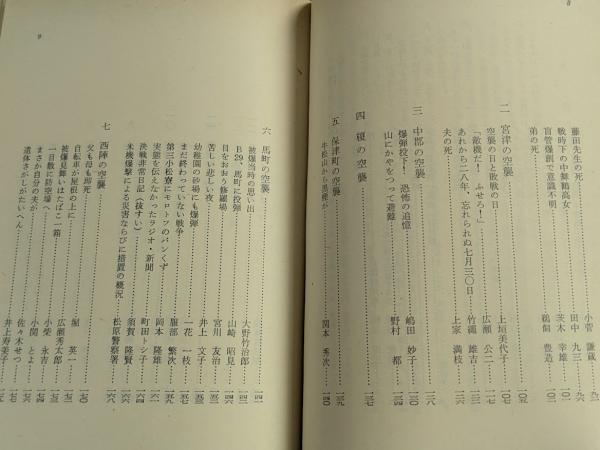 8
藤田先生の死 小菅 謙蔵
戦時下の中舞鶴高女 田中 九三
盲管爆創で意識不明 茨木 幸雄
弟の死 鵜飼 豊造
二 宮津の空襲 一〇五
空襲の日と敗戦の日 上垣美代子
「敵機だ! ふせろ!」 広瀬 公二
あれから二八年、忘れられぬ七月三〇日 竹瀬 雄吉
夫の死 上家 満枝
三 中郡の空襲 一二八
爆弾投下! 恐怖の追憶 嶋田 妙子 一三〇
山にかやをつって避難 野村 都 一三四
四 the空襲 一三七
五 保津町の空襲 一三九
牛松山から黒煙が 関本 秀次 一四〇
9
六 馬町の空襲
被爆当時の思い出 大野竹治郎
B29、馬町に投弾 山崎 昭見 一四六
目をおおう修羅場 宮川 友治
苦しい悲しい夜 井上 文子
幼稚園の砂場にも爆弾 一花 一枝
まだ終わっていない戦争 服部 繁次 一五九
第三小寮にモロトフのパンくず 岡本 隆雄
実態を伝えなかったラジオ・新聞 町田トシ子 一六四
決戦非常日記(抜すい) 須賀 隆賢
米機爆撃による災害ならびに措置の概況 松原警察署 一六八
七 西陣の空襲 一七〇
父も母も即死 堀 英一
自転車が屋根の上に 広瀬秀太郎
被爆見舞いはたばこ一箱 小柴 永吉
一目散に防空壕へ 小関 とよ
まさか自分の夫が 佐々木せつ
遺体さがしたいへん 井上寿美子